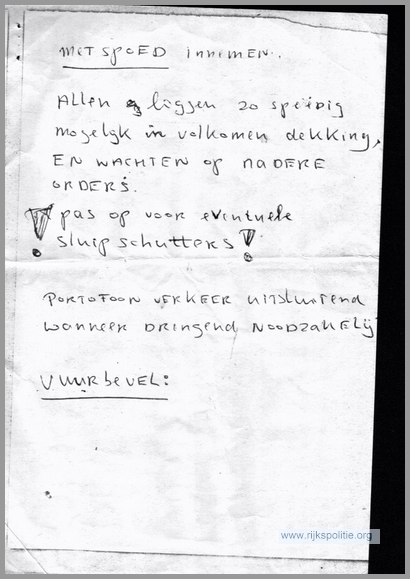 MET SPOED INNEMEN.
Allen liggen zo speidig
mogelijk in volkomen dekking,
EN WACHTEN OP NADERE
ORDERS.
! pas op voor eventuele
sluipschutters !
PORTOFOON VERKEER uitsluitend
wanneer DRINGEND NOODZAKELIJ
VUURBEVEL:
www.rijkspolitie.org